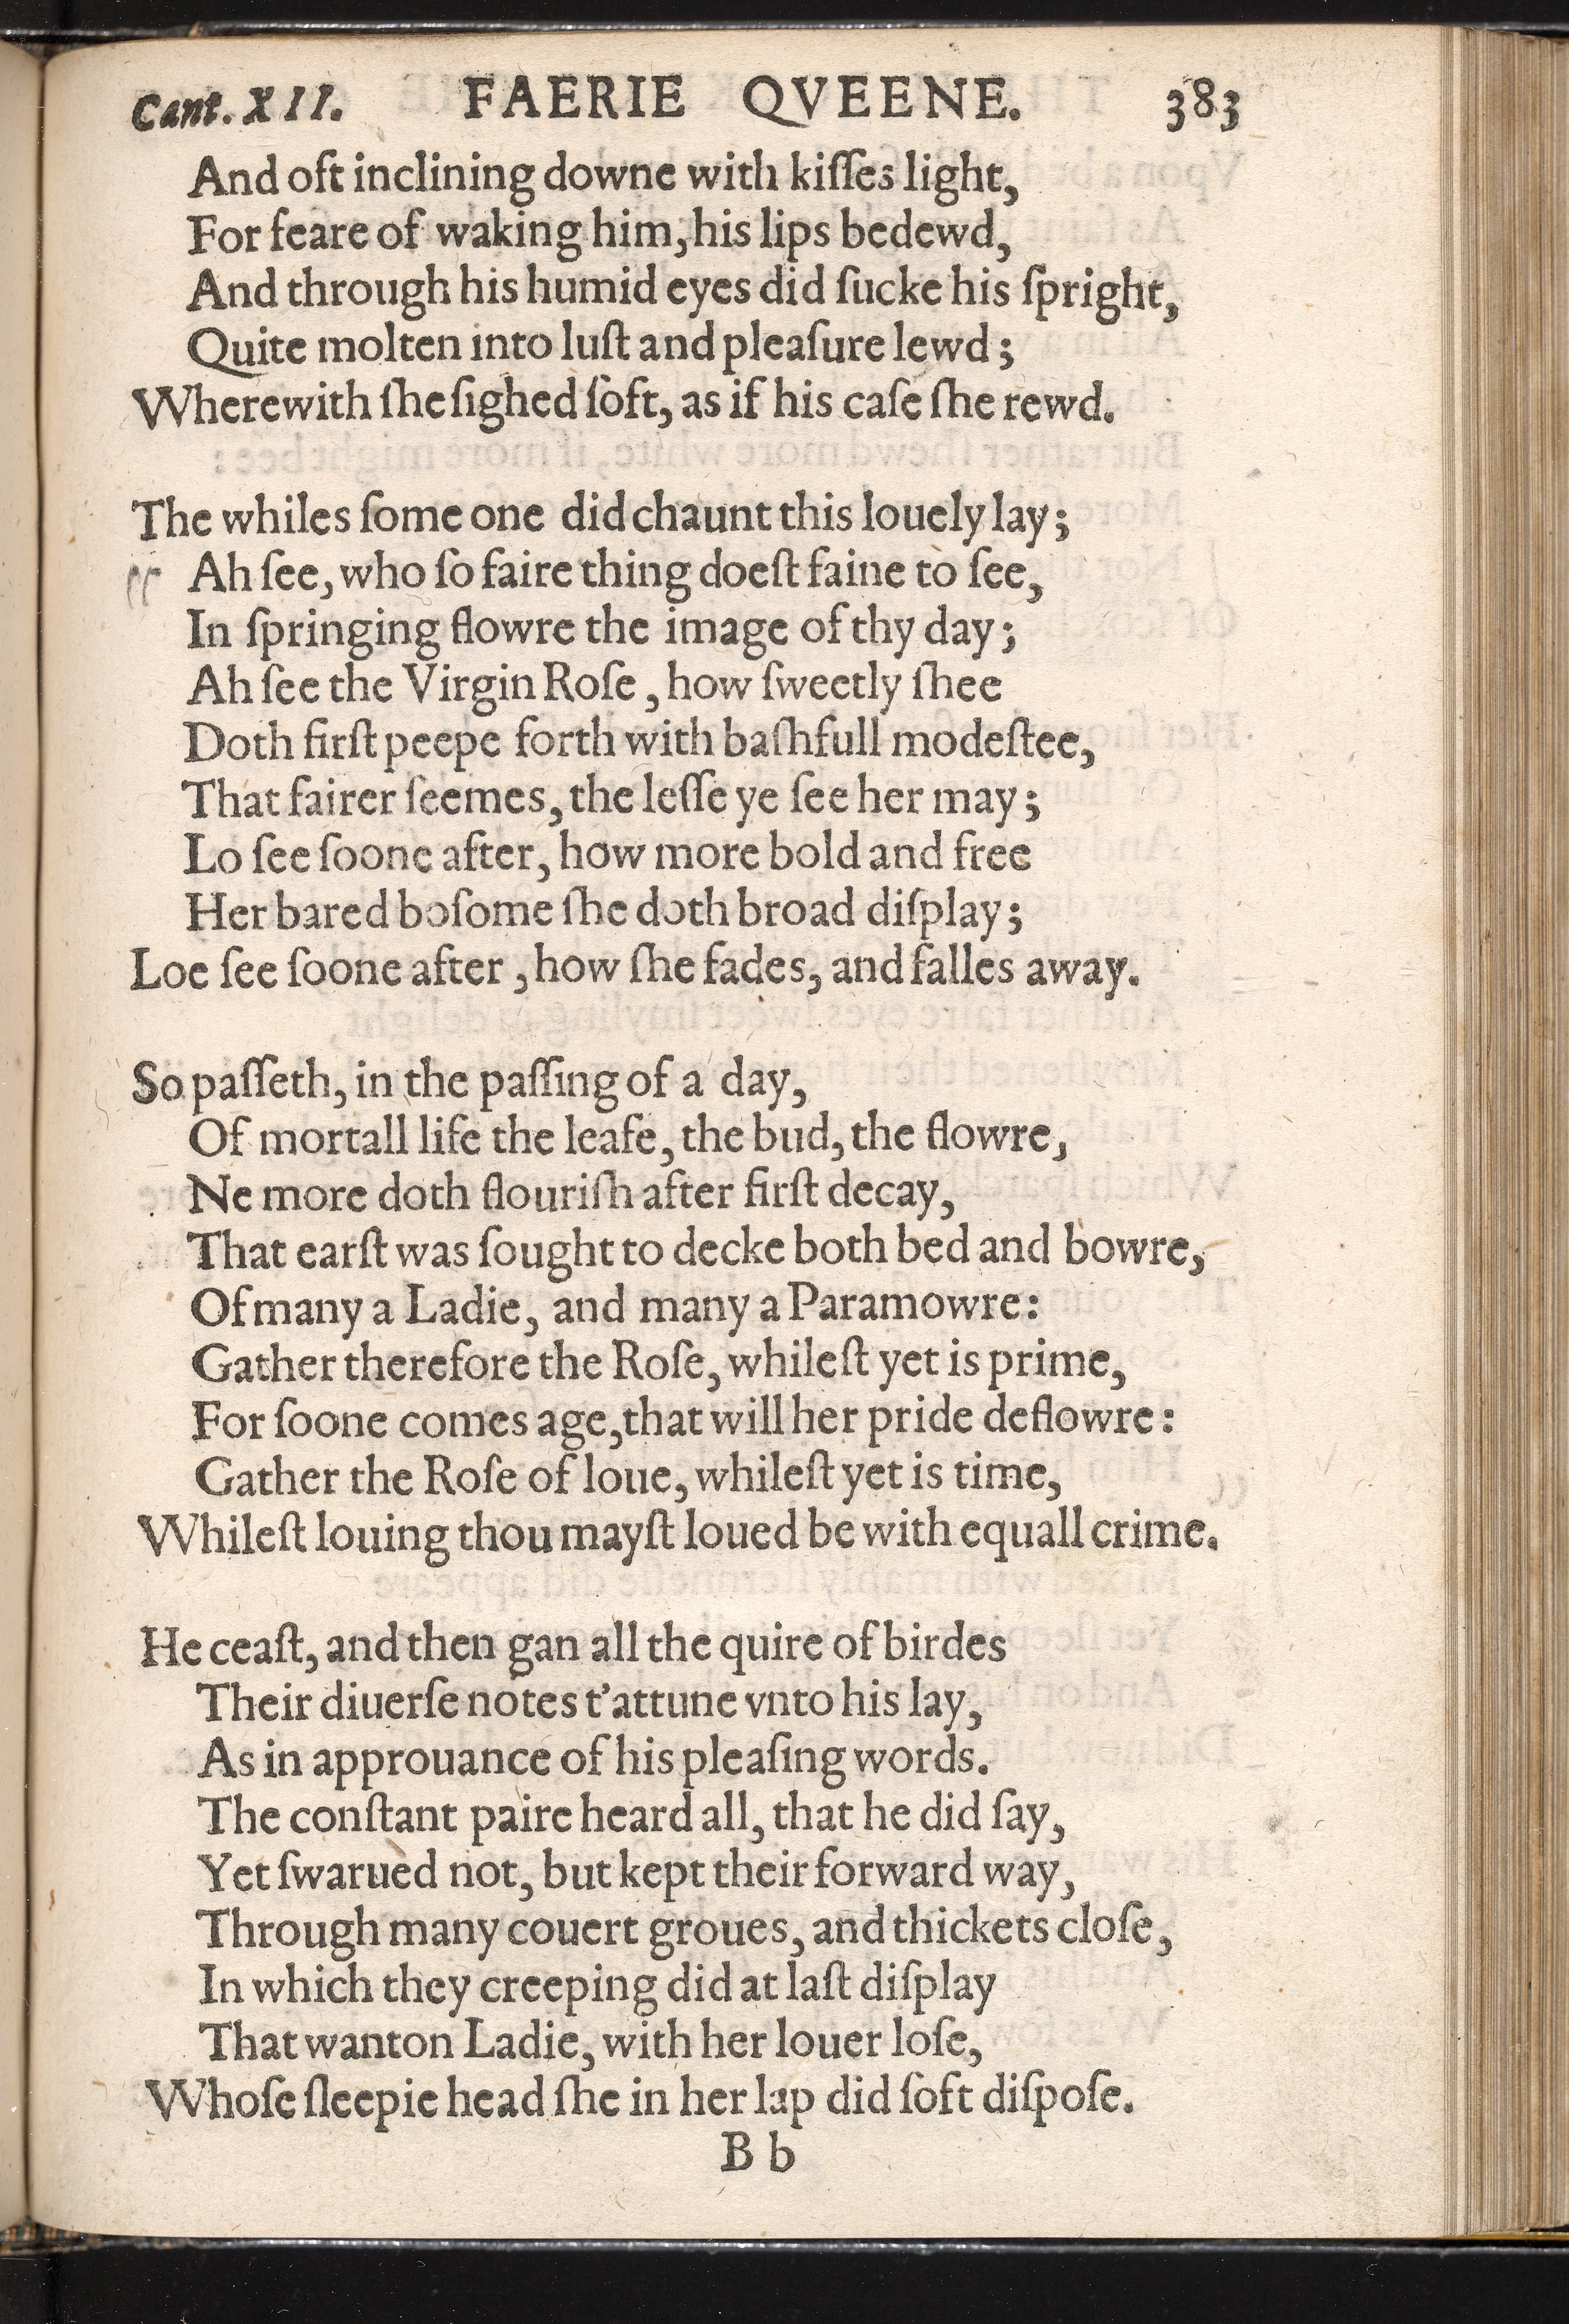 Cant. XII. FAERIE QVEENE. 383
And oft inclining downe with kiſſes light,
For feare of waking him, his lips bedewd,
And through his humid eyes did ſucke his ſpright,
Quite molten into luſt and pleaſure lewd;
Wherewith ſhe ſighed ſoft, as if his caſe ſhe rewd.
The whiles ſome one did chaunt this louely lay;
Ah ſee, who ſo faire thing doeſt faine to ſee,
In ſpringing flowre the image of thy day;
Ah ſee the Virgin Roſe, how ſweetly ſhee
Doth firſt peepe forth with baſhfull modeſtee,
That fairer ſeemes, the leſſe ye ſee her may;
Lo ſee ſoone after, how more bold and free
Her bared boſome ſhe doth broad diſplay;
Loe ſee ſoone after, how ſhe fades, and falles away.
So paſſeth, in the paſſing of a day,
Of mortall life the leafe, the bud, the flowre,
Ne more doth flouriſh after firſt decay,
That earſt was ſought to decke both bed and bowre,
Of many a Ladie, and many a Paramowre:
Gather therefore the Roſe, whileſt yet is prime,
For ſoone comes age, that will her pride deflowre:
Gather the Roſe of loue, whileſt yet is time,
Whileſt louing thou mayſt loued be with equall crime.
He ceaſt, and then gan all the quire of birdes
Their diuerſe notes t'attune vnto his lay,
As in approuance of his pleaſing words.
The conſtant paire heard all, that he did ſay,
Yet ſwarued not, but kept their forward way,
Through many couert groues, and thickets cloſe,
In which they creeping did at laſt diſplay
That wanton Ladie, with her louer loſe,
Whoſe ſleepie head ſhe in her lap did ſoft diſpoſe.
B b